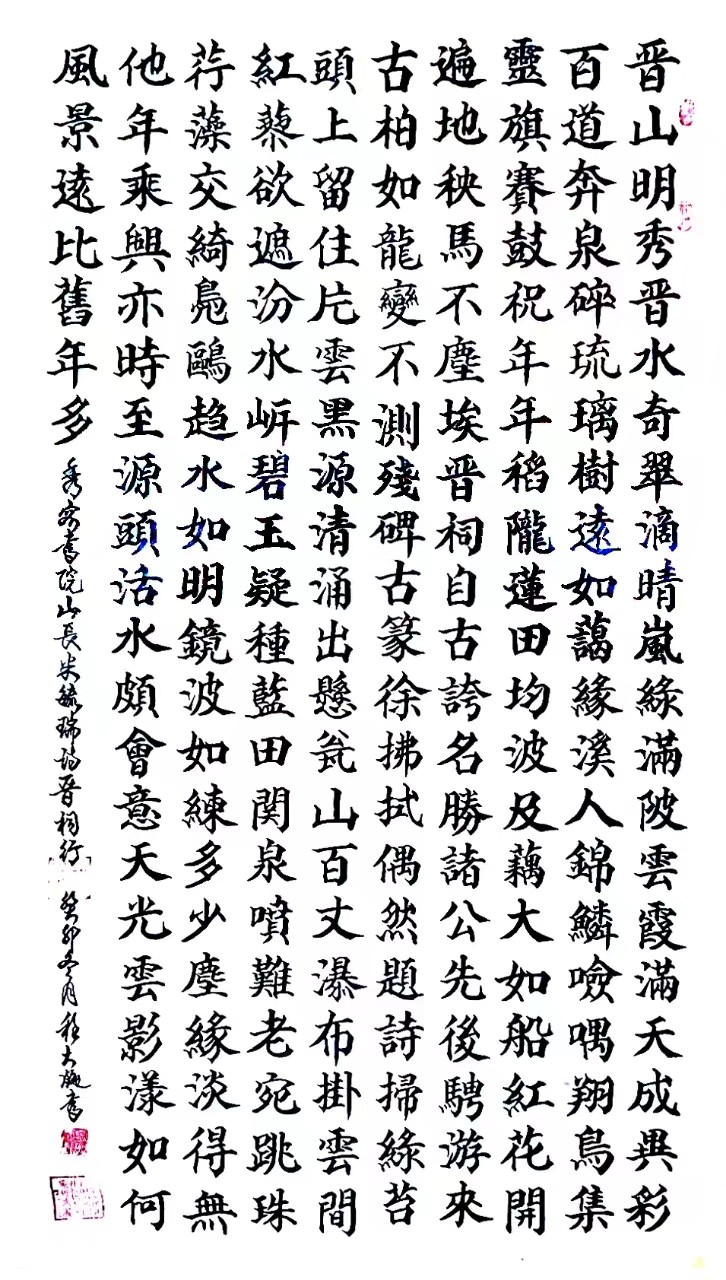 晋山明秀晋水奇翠滴晴嵐綠滿陂雲霞滿天成異彩
百道奔泉碎琉璃樹遠如藹緣溪人錦鱗噞喁翔鳥集
靈旗賽鼓祝年年稻隴蓮田均波及藕大如船紅花開
遍地秧馬不塵埃晋祠自古誇名勝諸公先後騁游來
古柏如龍變不測殘碑古篆徐拂拭偶然題詩掃綠苔
頭上留住片雲黑源清涌出懸瓮山百丈瀑布掛雲間
紅蓼欲遮汾水岍碧玉疑種藍田関泉噴難老宛跳珠
荇藻交綺鳧鷗趋水如明鏡波如練多少塵緣淡得無
他年乘興亦時至源頭活水頗會意天光雲影漾如何
風景遠比舊年多
秀容書院山長米毓瑞詩晋祠行
癸卯冬月程大
書